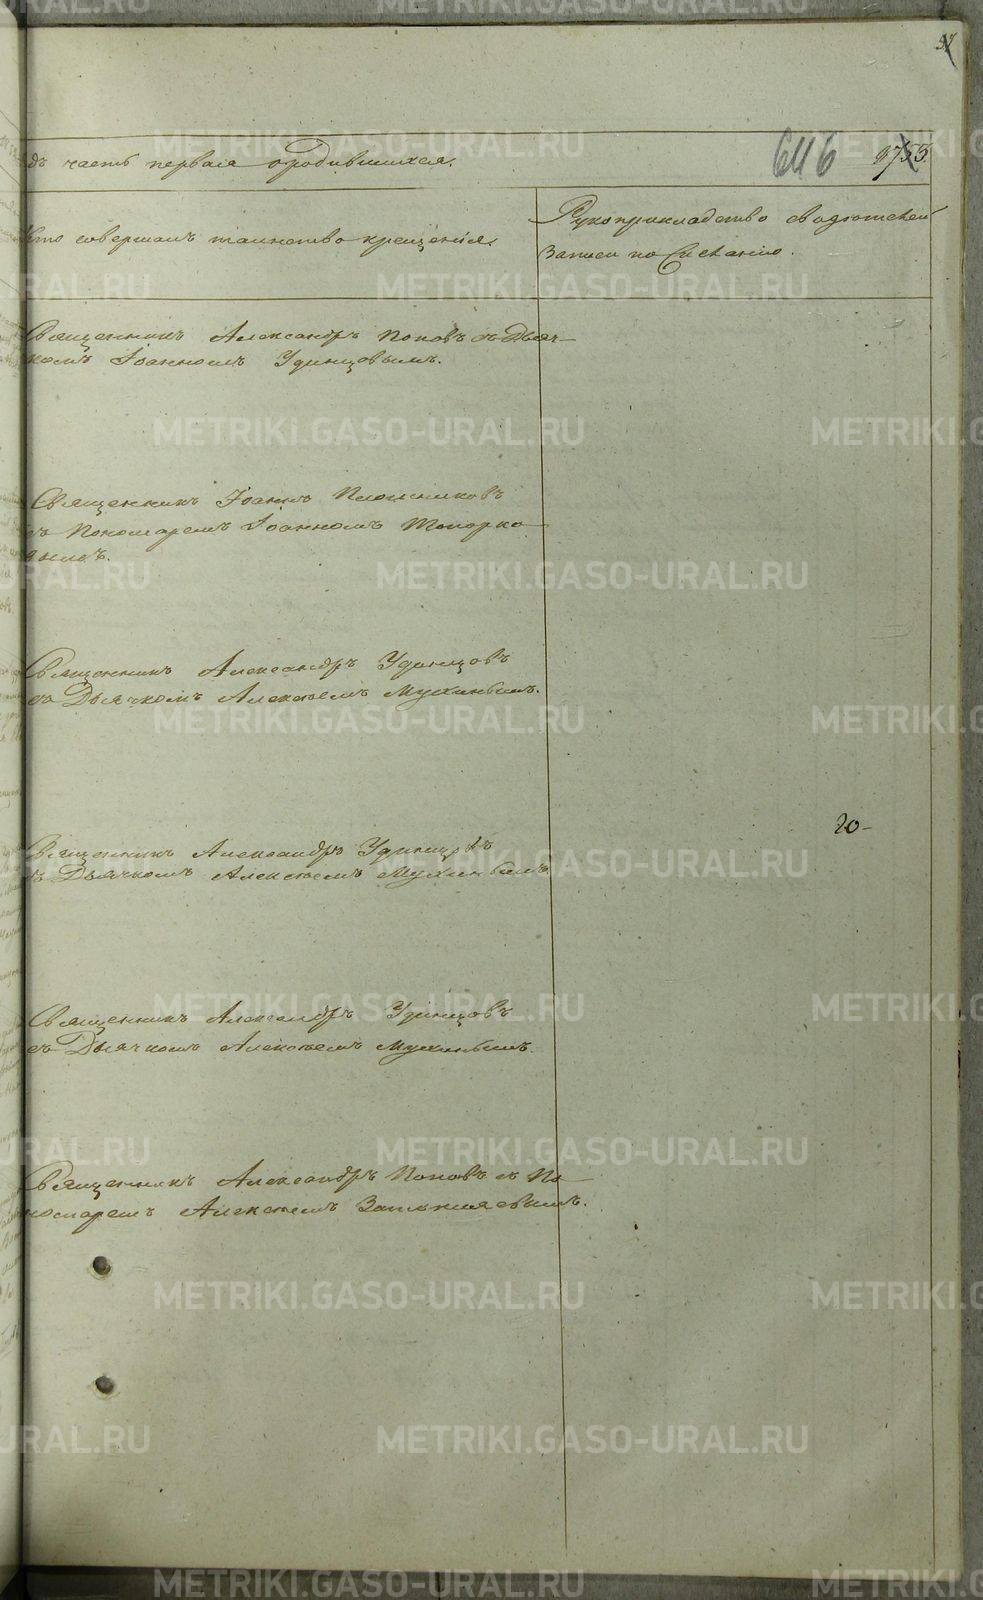 дъ часть первая о родившихся.
646
Кто совершалъ таинство крещенія.
Рукоприкладство свидѣтелей
записи по желанію.
Священникъ Александръ Поповъ съ Дьяч-
комъ Іоанномъ Удинцовымъ.
Священникъ Іоаннъ Плотниковъ
съ Пономаремъ Іоанномъ Топорко
вымъ.
Священникъ Александръ Удинцовъ
съ Дьячкомъ Алексѣемъ Мухинымъ.
20-
Священникъ Александръ Удинцовъ
съ Дьячкомъ Алексѣемъ Мухинымъ
Священникъ Александръ Удинцовъ
съ Дьячкомъ Алексѣемъ Мухинымъ.
Священникъ Александръ Поповъ съ По
номаремъ Алексѣемъ
METRIKI.GASO-URAL.RU